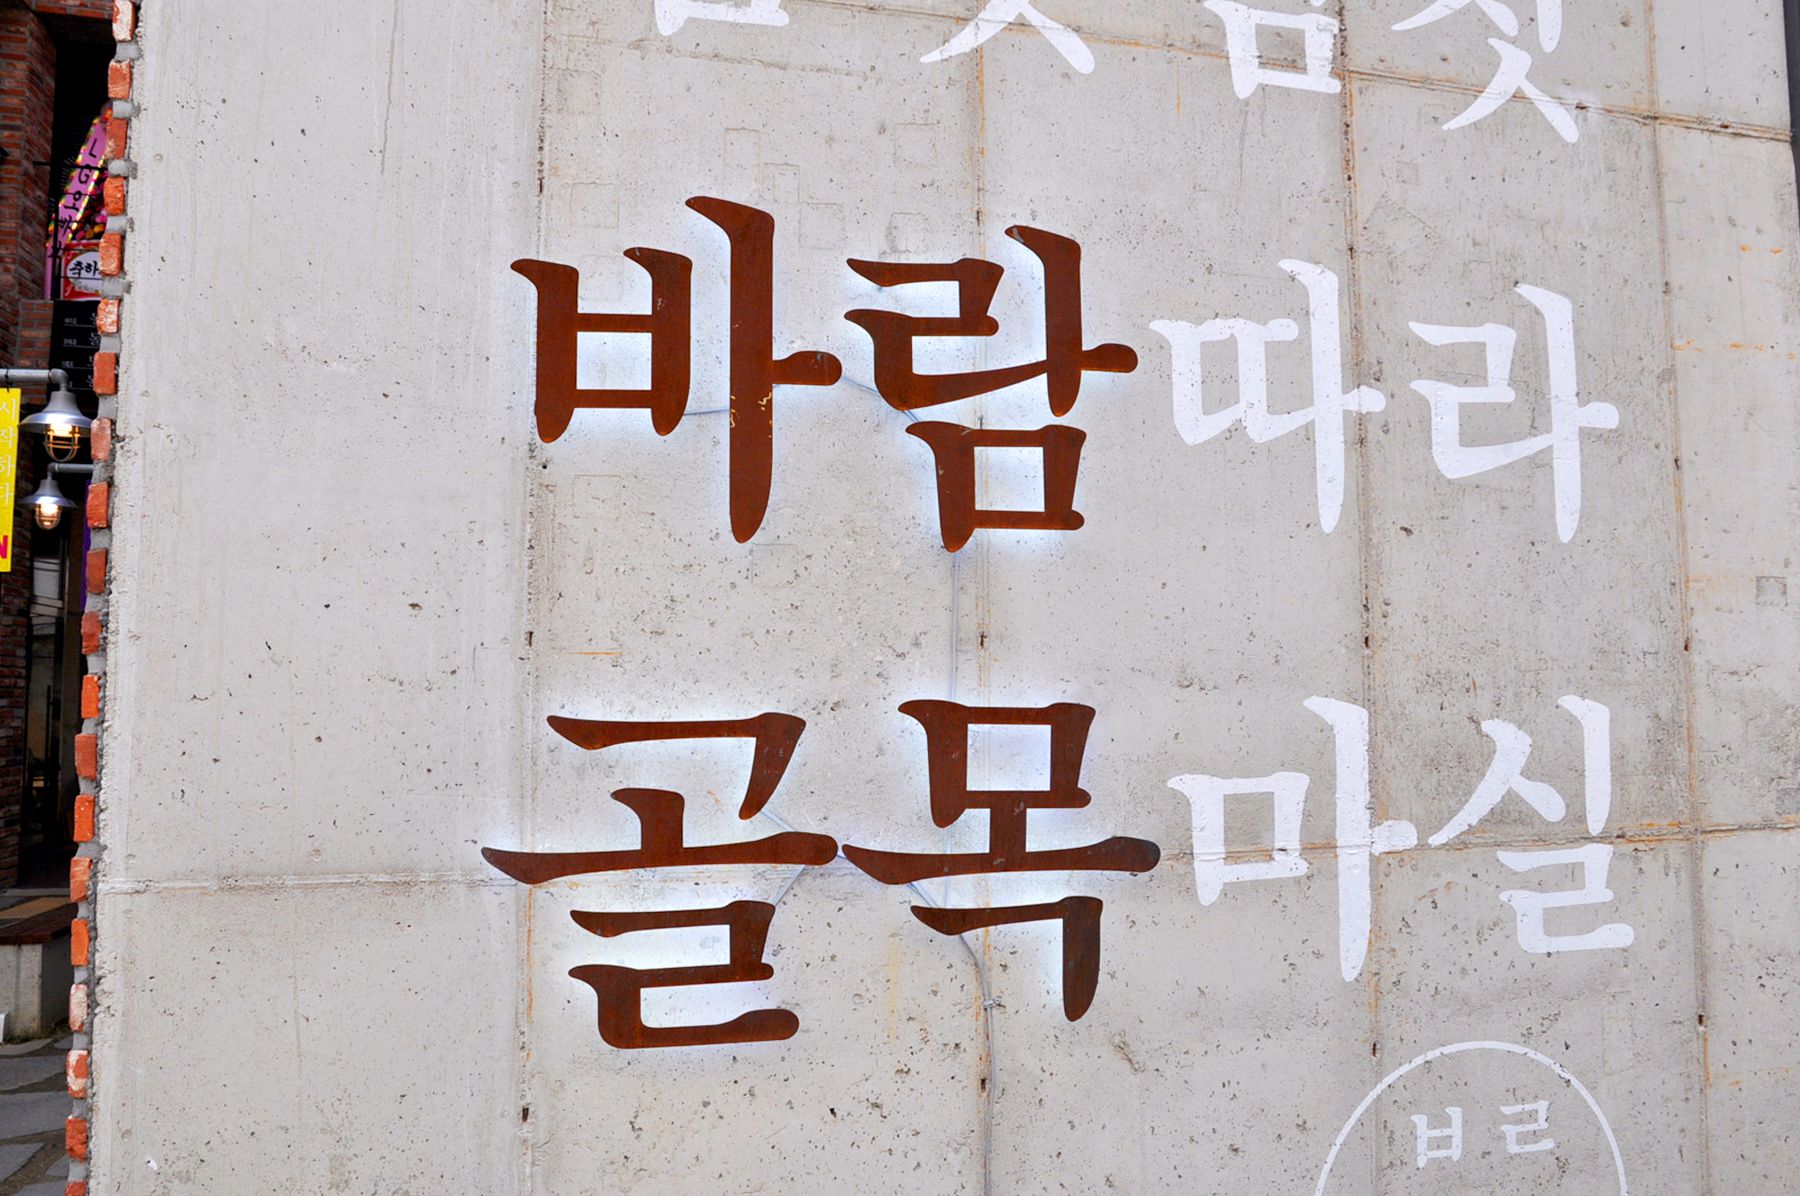 바람따라
골목마실
ㅂㄹ
축하
시작하다